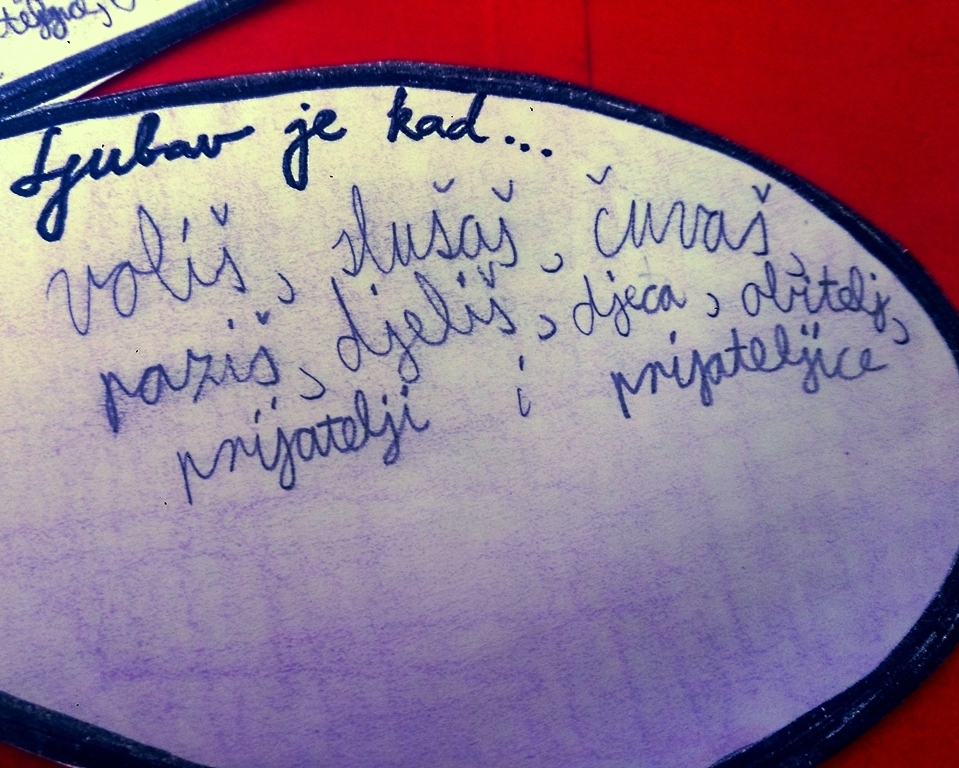 Ljubav je kad...
voliš, slušaš, čuvaš,
paziš, djeliš, djeca, obitelj,
prijatelji i prijateljice